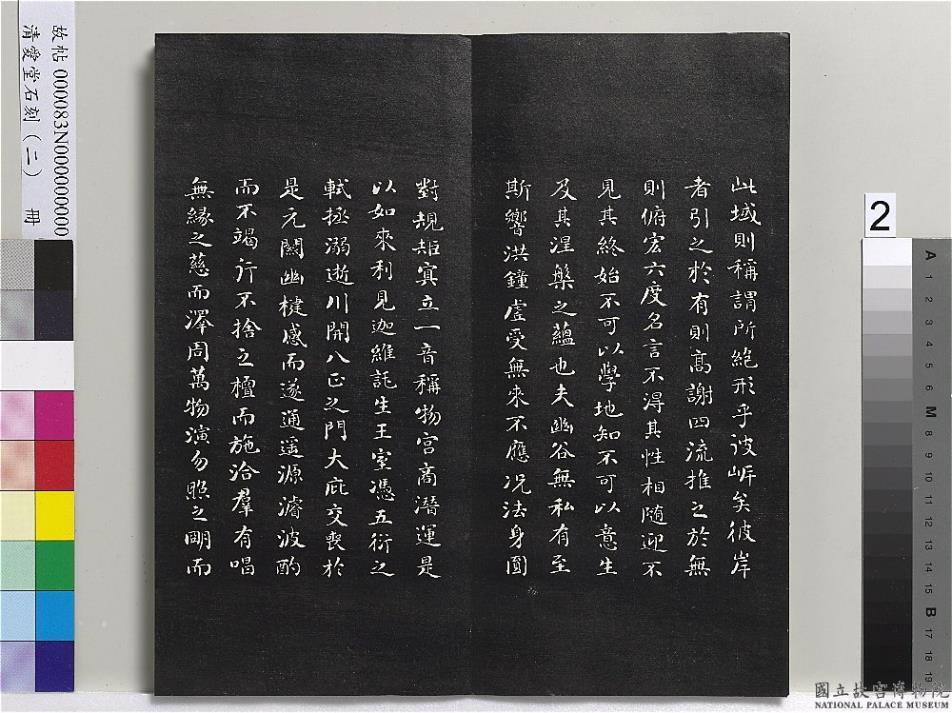 此域則稱謂所絶形乎彼岸矣彼岸
者引之於有則高謝四流推之於無
則俯宏六度名言不得其性相隨迎不
見其終始不可以學地知不可以意生
及其涅槃之蘊也夫幽谷無私有至
斯響洪鐘虛受無來不應况法身圓
對規矩冥立一音稱物宮商潛運是
以如來利見迦維託生王室憑五衍之
軾拯溺逝川開八正之門大庇交喪於
是元關幽楗感而遂通遥源濬波酌
而不竭行不捨之檀而施洽羣有唱
無緣之慈而澤周萬物演勿照之明而
故帖000083N000000000
清愛堂石刻(二) 冊
2
A 1 2 3 4 5 6 M 8 9 10 11 12 13 14 15 B 17 18 19
國立故宮博物院
NATIONAL PALACE MUSEUM